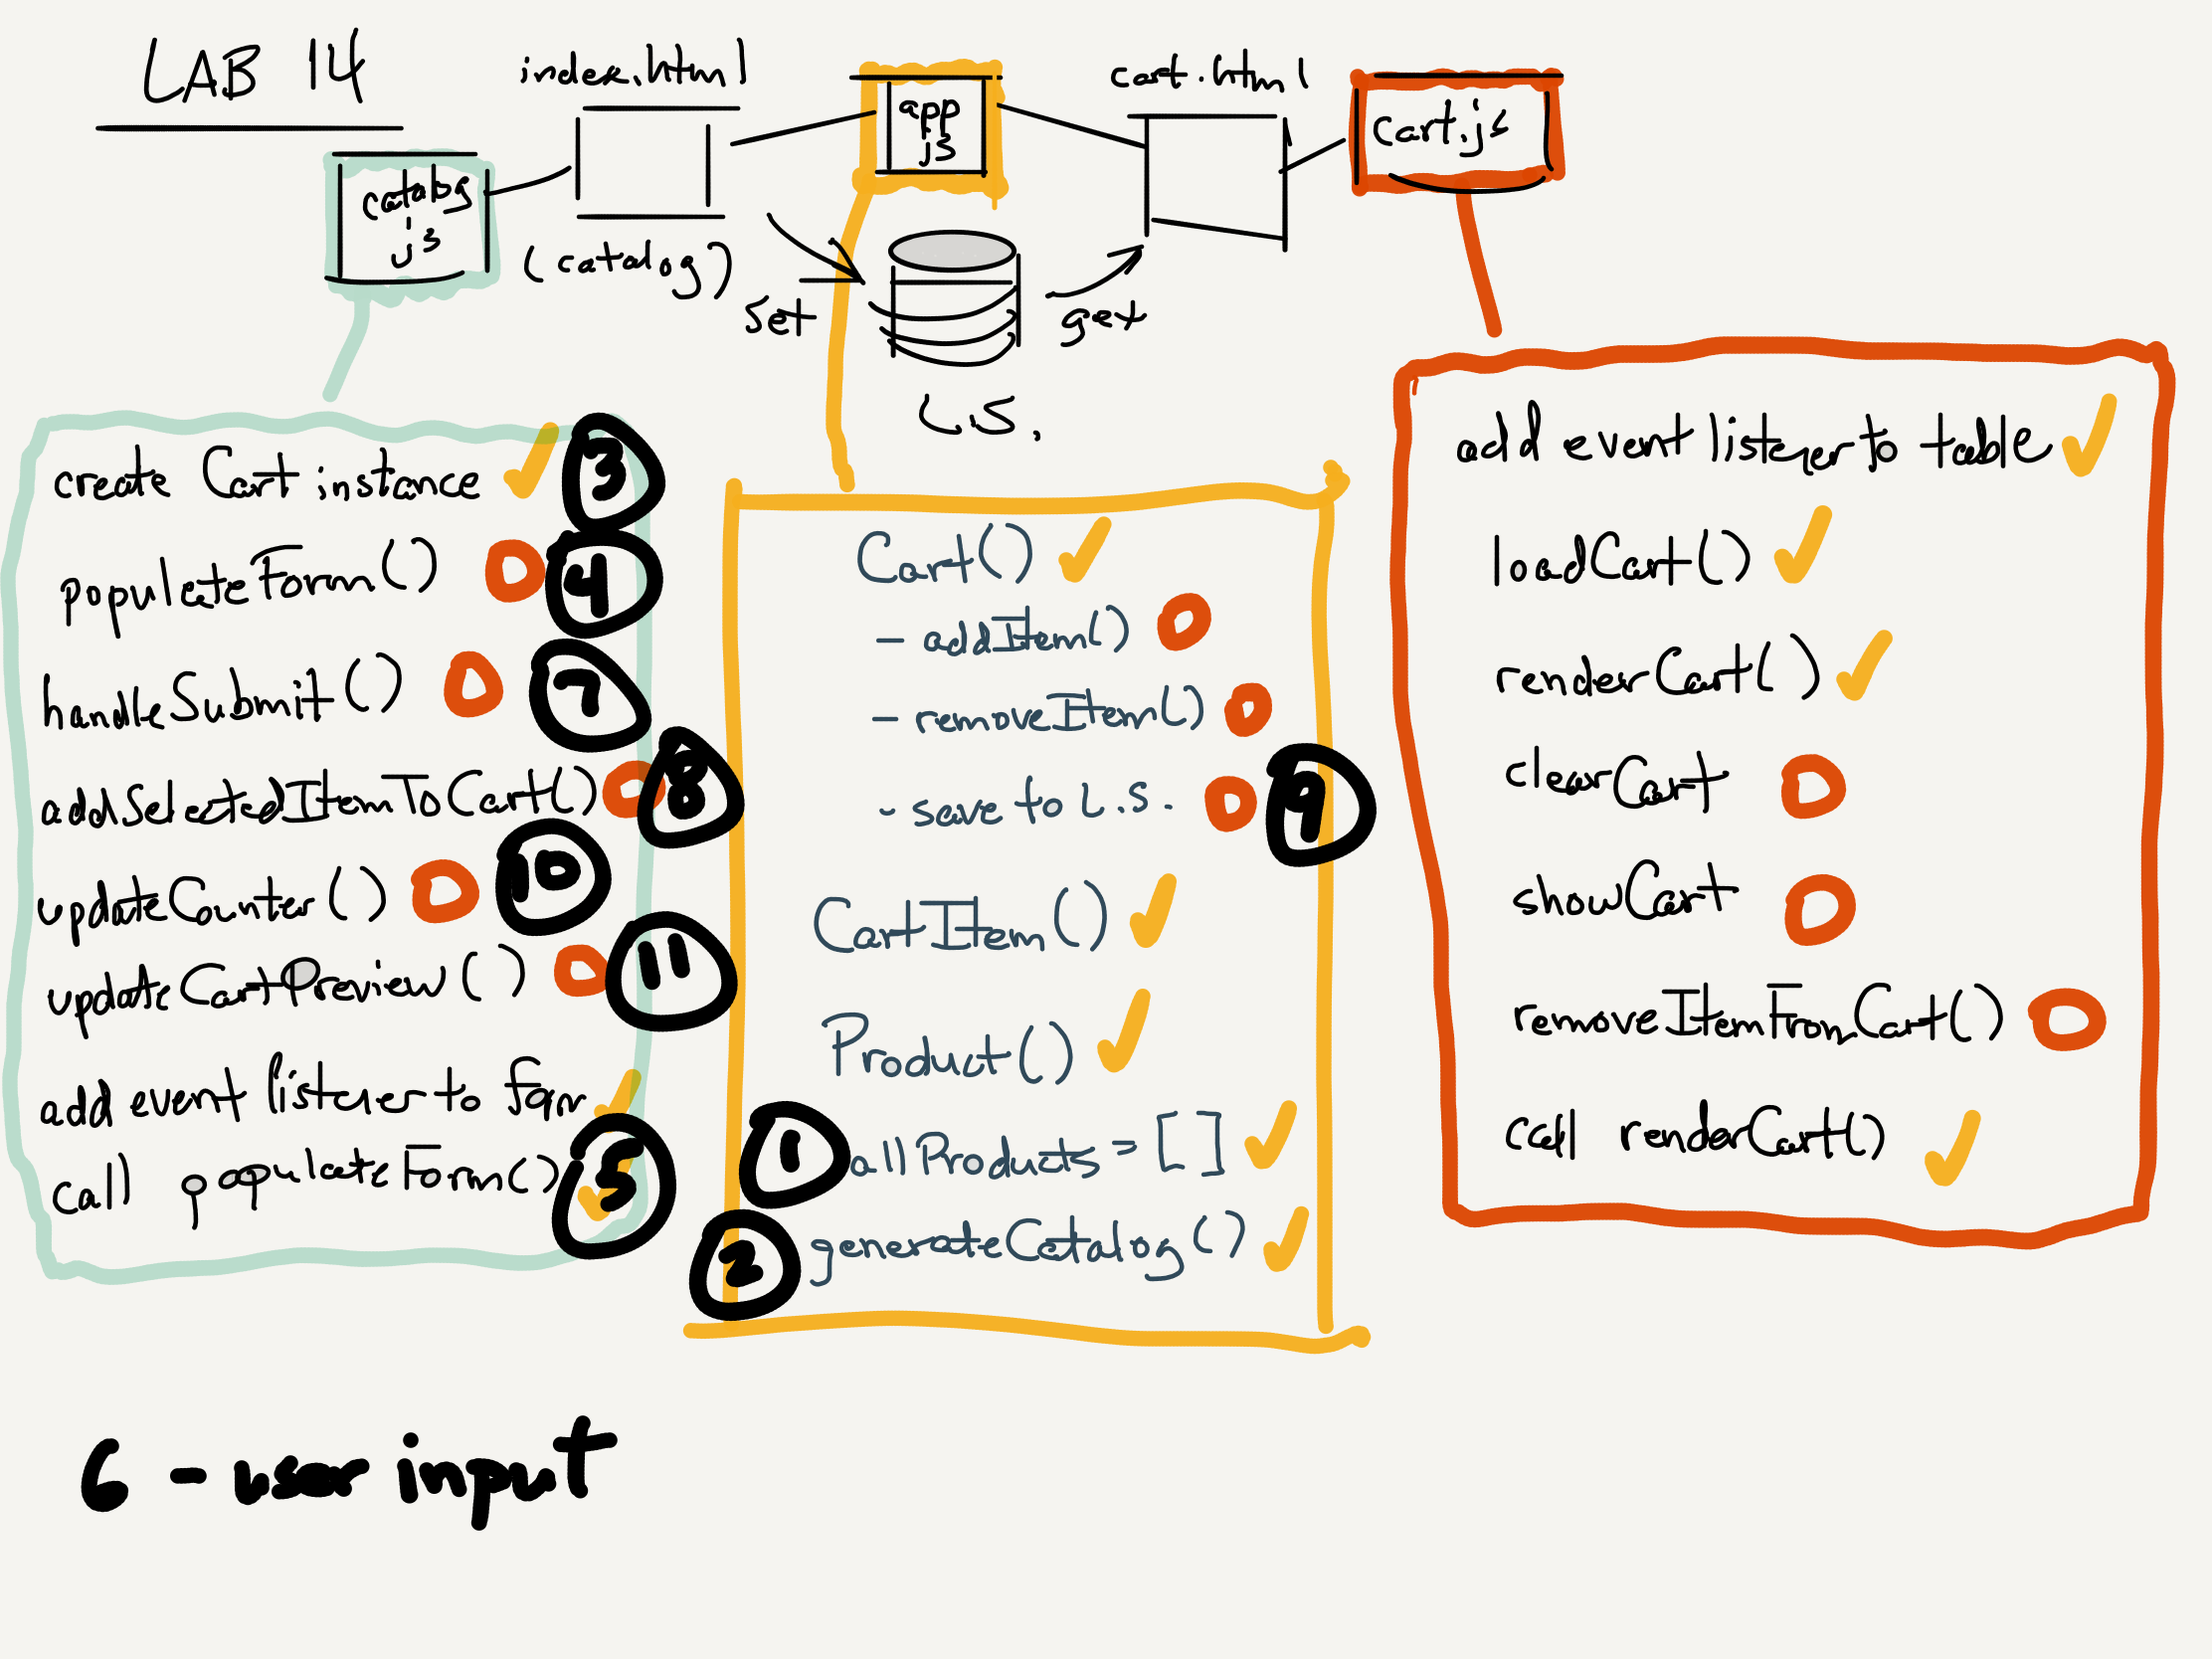 LAB 14
index.html
app
js
cart.html
cart.js
catalog
js
(catalog)
set
get
L.S.
create Cart instance
3
populateForm()
4
handleSubmit()
7
addSelectedItemToCart()
8
updateCounter()
10
updateCartPreview()
11
add event listener to form
call populateForm()
5
Cart()
- addItem()
- removeItem()
- save to L.S.
9
CartItem()
Product()
1
allProducts = []
2
generateCatalog()
add event listener to table
loadCart()
renderCart()
clearCart
showCart
removeItemFromCart()
call renderCart()
6 - user input